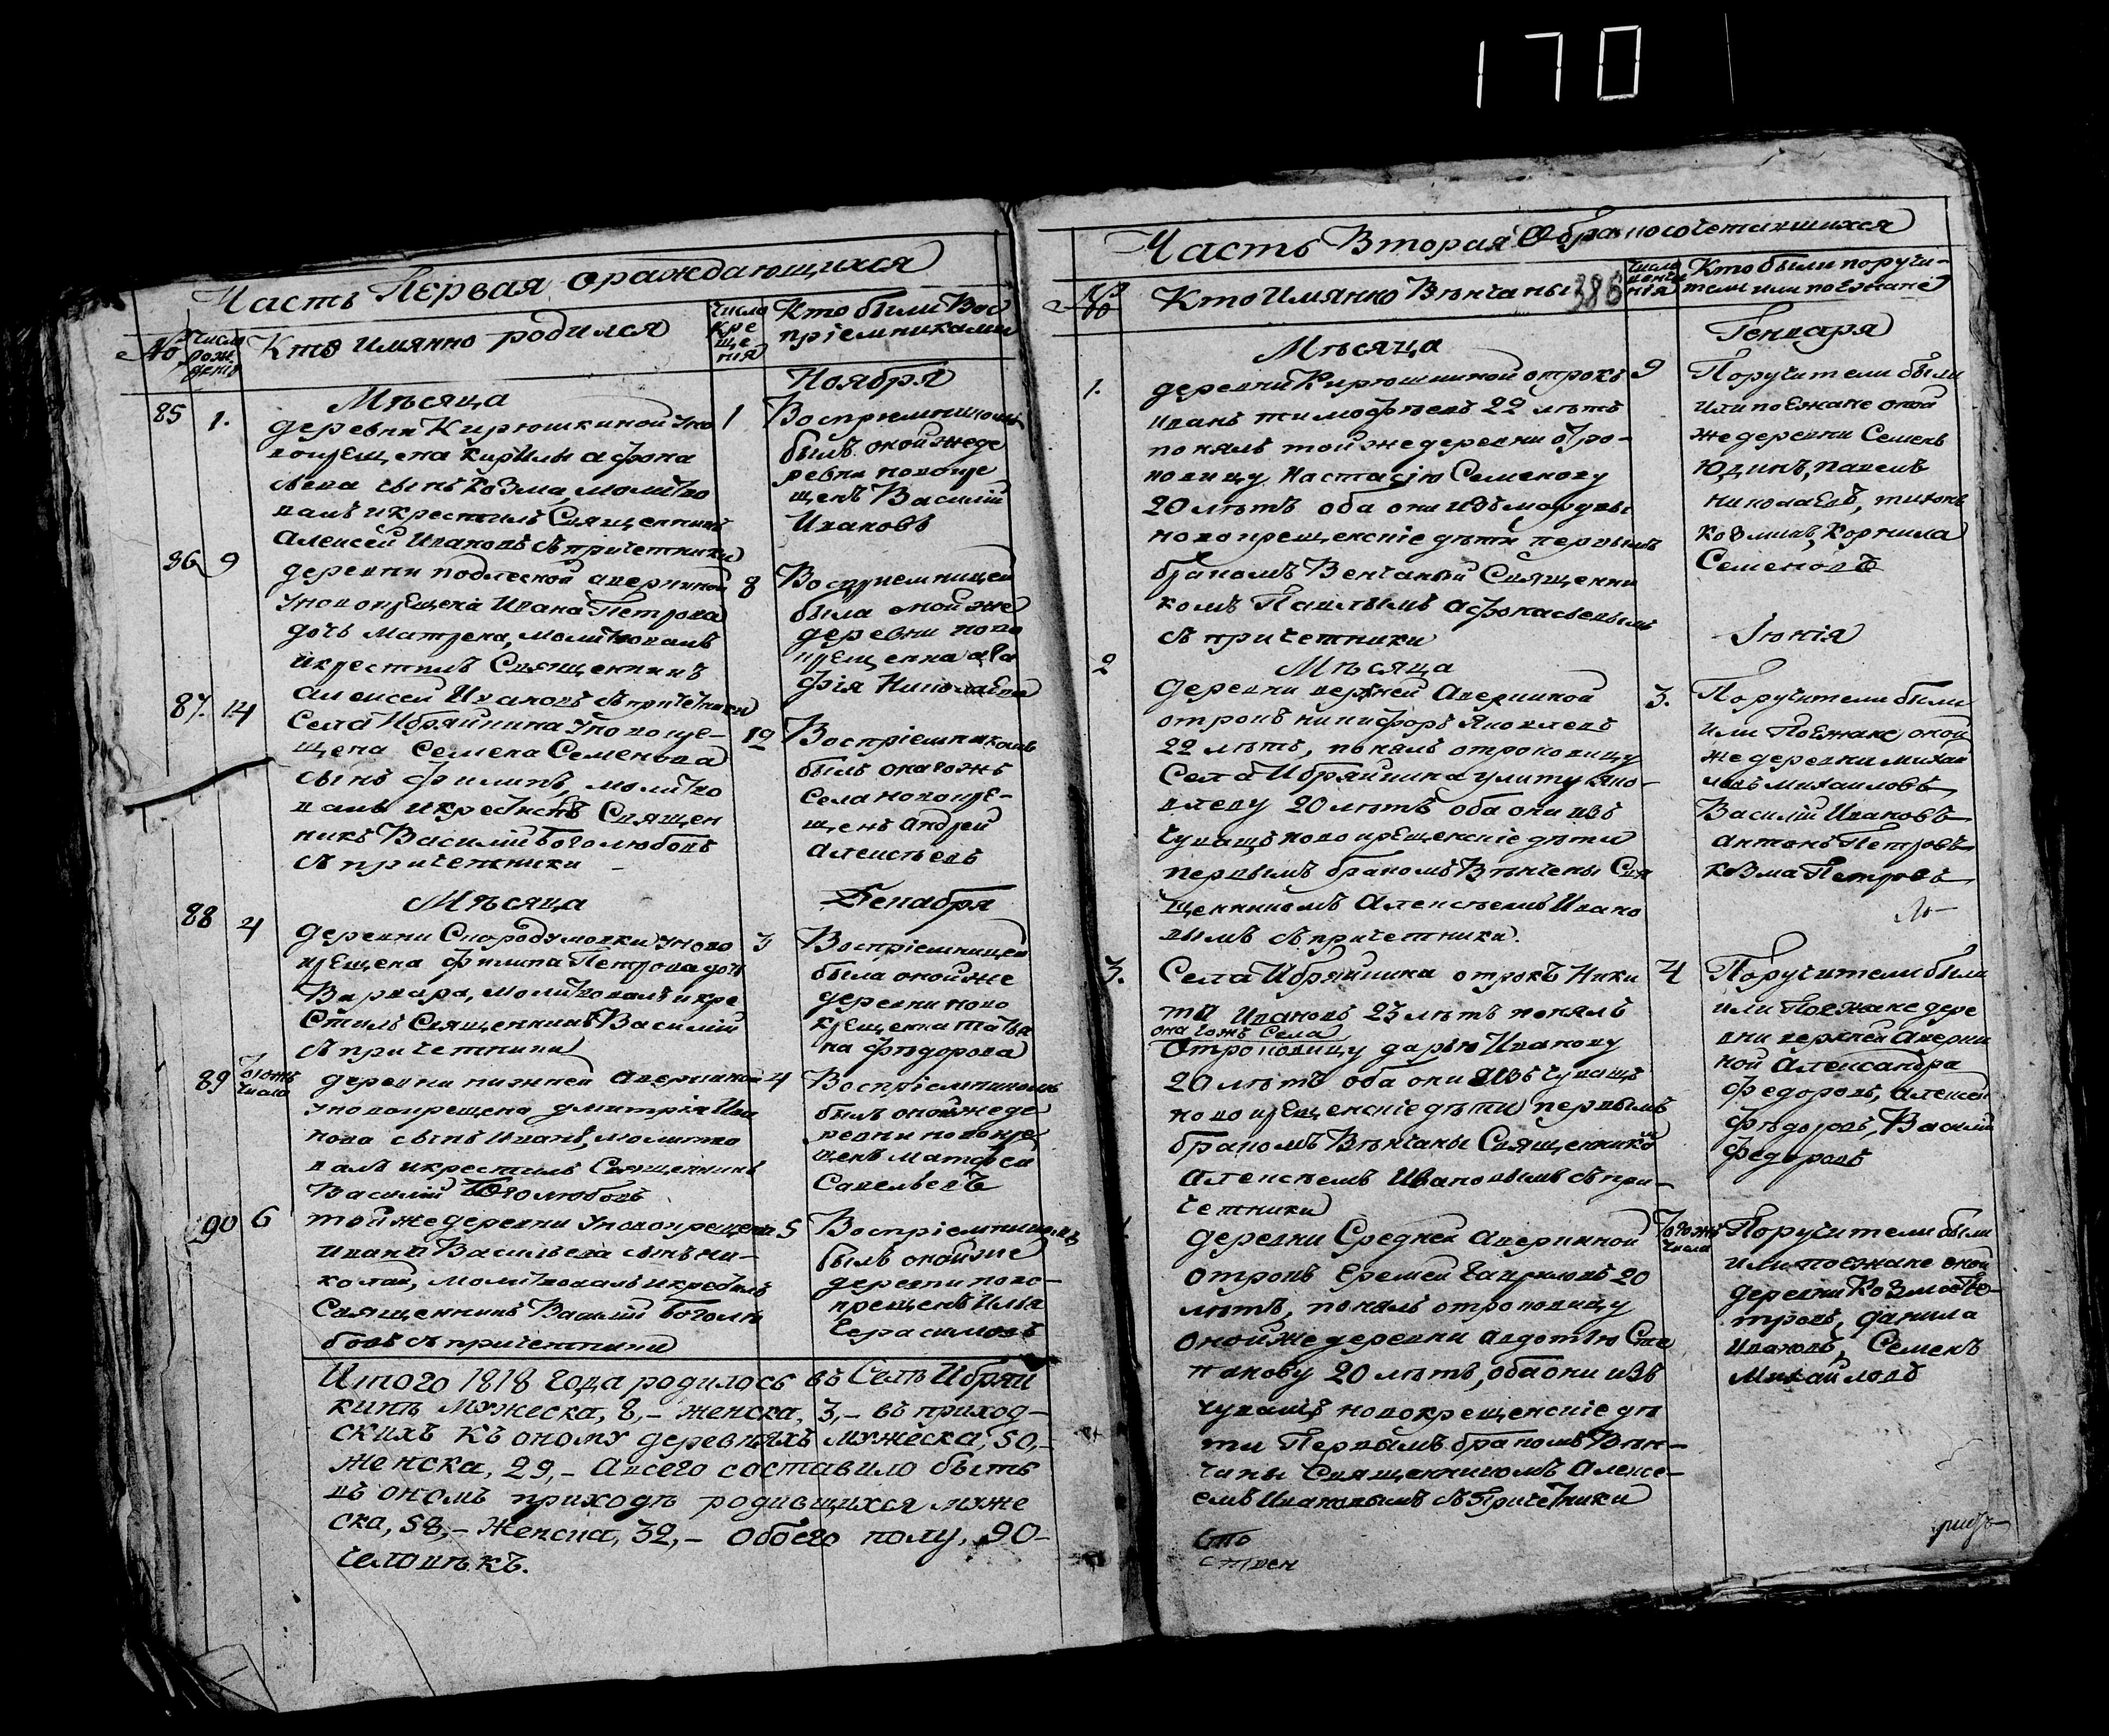 170
Часть Первая ораждающихся
№
число рождения
Кто имянно родился
число крещения
Кто были Вос
пріемниками
Мѣсяца
Ноября
85
1.
деревни Кирюшкиной Уно
вокрещена Кирилы Афона
сьева сынъ Козма, молитво
валъ и крестилъ Священникъ
Алексей Ивановъ съ причетники
1
Воспріемникомъ
былъ оной же де
ревни новокре
щенъ Василій
Ивановъ
86
9
деревни подлесной Аверкиной
Уновокрещена Ивана Петрова
дочь Матрена, молитвовалъ
и крестилъ Священникъ
Алексей Ивановъ съ причетники
8
Воспріемницей
была оной же
деревни ново
крещенка Ага
фія Николаева
87.
14
Села Ибряйкина Уновокре-
щена Семена Семенова
сынъ Филипъ, молитво
валъ и крестилъ Священ
никъ Василій Боголюбовъ
съ причетники
19
Воспріемникомъ
былъ онагожъ
села новокре-
щенъ Андрей
Алексѣевъ
Мѣсяца
Декабря
88
4
деревни Скородумовки Уново
крещена Филипа Петрова дочь
Варвара, молитвовалъ и кре
стилъ Священникъ Василій
съ причетники
3
Воспріемницей
была оной же
деревни ново
крещенка Татья
на Фѣдорова
89
Тогожъ
числа
деревни нижней Аверкиной
Уновокрещена Дмитрія Ива
нова сынъ Иванъ, молитво
валъ и крестилъ Священникъ
Василій Боголюбовъ
4
Воспріемникомъ
былъ оной же де
ревни новокре
щенъ Матфей
Савельевъ
90
6
той же деревни Уновокрещена
Ивана Васильева сынъ Ни-
колай, молитвовалъ и крестилъ
Священникъ Василій Боголю
бовъ съ причетники
5
Воспріемникомъ
былъ оной же
деревни ново-
крещенъ Илья
Герасимовъ
Итого 1818 года родилось въ Селѣ Ибряй
кинѣ мужеска, 8,- женска, 3,- въ приход-
скихъ къ оному деревняхъ мужеска, 50,-
женска, 29,- Авсего составило быть
въ ономъ приходѣ родившихся муже
ска, 58,- Женска, 32,- Обоего полу, 90-
человѣкъ.
Часть Вторая О бракосочетавшихся
№
Кто Имянно Вѣнчаны
386
число
венча
нія
Кто были поручи-
тели или поезжане
Мѣсяца
Генваря
1.
деревни Кирюшкиной отрокъ
Иванъ Тимофѣевъ 22 лѣтъ
понялъ той же деревни отро-
ковицу Настасію Семенову
20 лѣтъ оба они изъ мордвы
новокрещенскіе дѣти первымъ
бракомъ Венчаны Священни
комъ Павлымъ Афонасьевымъ
съ причетники
9
Поручители были
или поезжане оной
же деревни Семенъ
Юдинъ, Павелъ
Николаевъ, Тихонъ
Козминъ, Корнила
Семеновъ
Мѣсяца
Іюнія
2
деревни верхней Аверкиной
отрокъ Никифоръ Яковлевъ
22 лѣтъ, понялъ отроковицу
Села Ибряйкина Улиту Яко-
влеву 20 лѣтъ оба они изъ
чувашъ новокрещенскіе дѣти
первымъ бракомъ Вѣнчены Свя
щенникомъ Алексѣемъ Ивано
вымъ съ причетники.
3.
Поручители были
или Поезжане оной
же деревни Михай
ловъ Михаиловъ
Василій Ивановъ
Антонъ Петровъ
Козма Петровъ
3.
Села Ибряйкина отрокъ Ники
та Ивановъ 23 лѣтъ понялъ
онагожъ Села
отроковицу Дарью Иванову
20 лѣтъ оба они изъ чувашъ
новокрещенскіе дѣти первымъ
бракомъ Вѣнчаны Священникомъ
Алексѣемъ Ивановымъ съ при-
четники
4
Поручители были
или Поезжане дере
вни верхней Аверки
ной Александра
Федоровъ, Алексей
Фѣдоровъ, Василій
Федоровъ
деревни Средней Аверкиной
отрокъ Еремей Гавриловъ 20
лѣтъ, понялъ отроковицу
оной же деревни Авдотью Сте
панову 20 лѣтъ, оба они изъ
чувашъ новокрещенскіе дѣ
ти Первымъ бракомъ Вѣн-
чаны Священникомъ Алексе-
емъ Ивановымъ съ Причетники
Тогожъ
числа
Поручители были
или поезжане оной
деревни Козма Пе-
тровъ, Данила
Ивановъ, Семенъ
Михайловъ